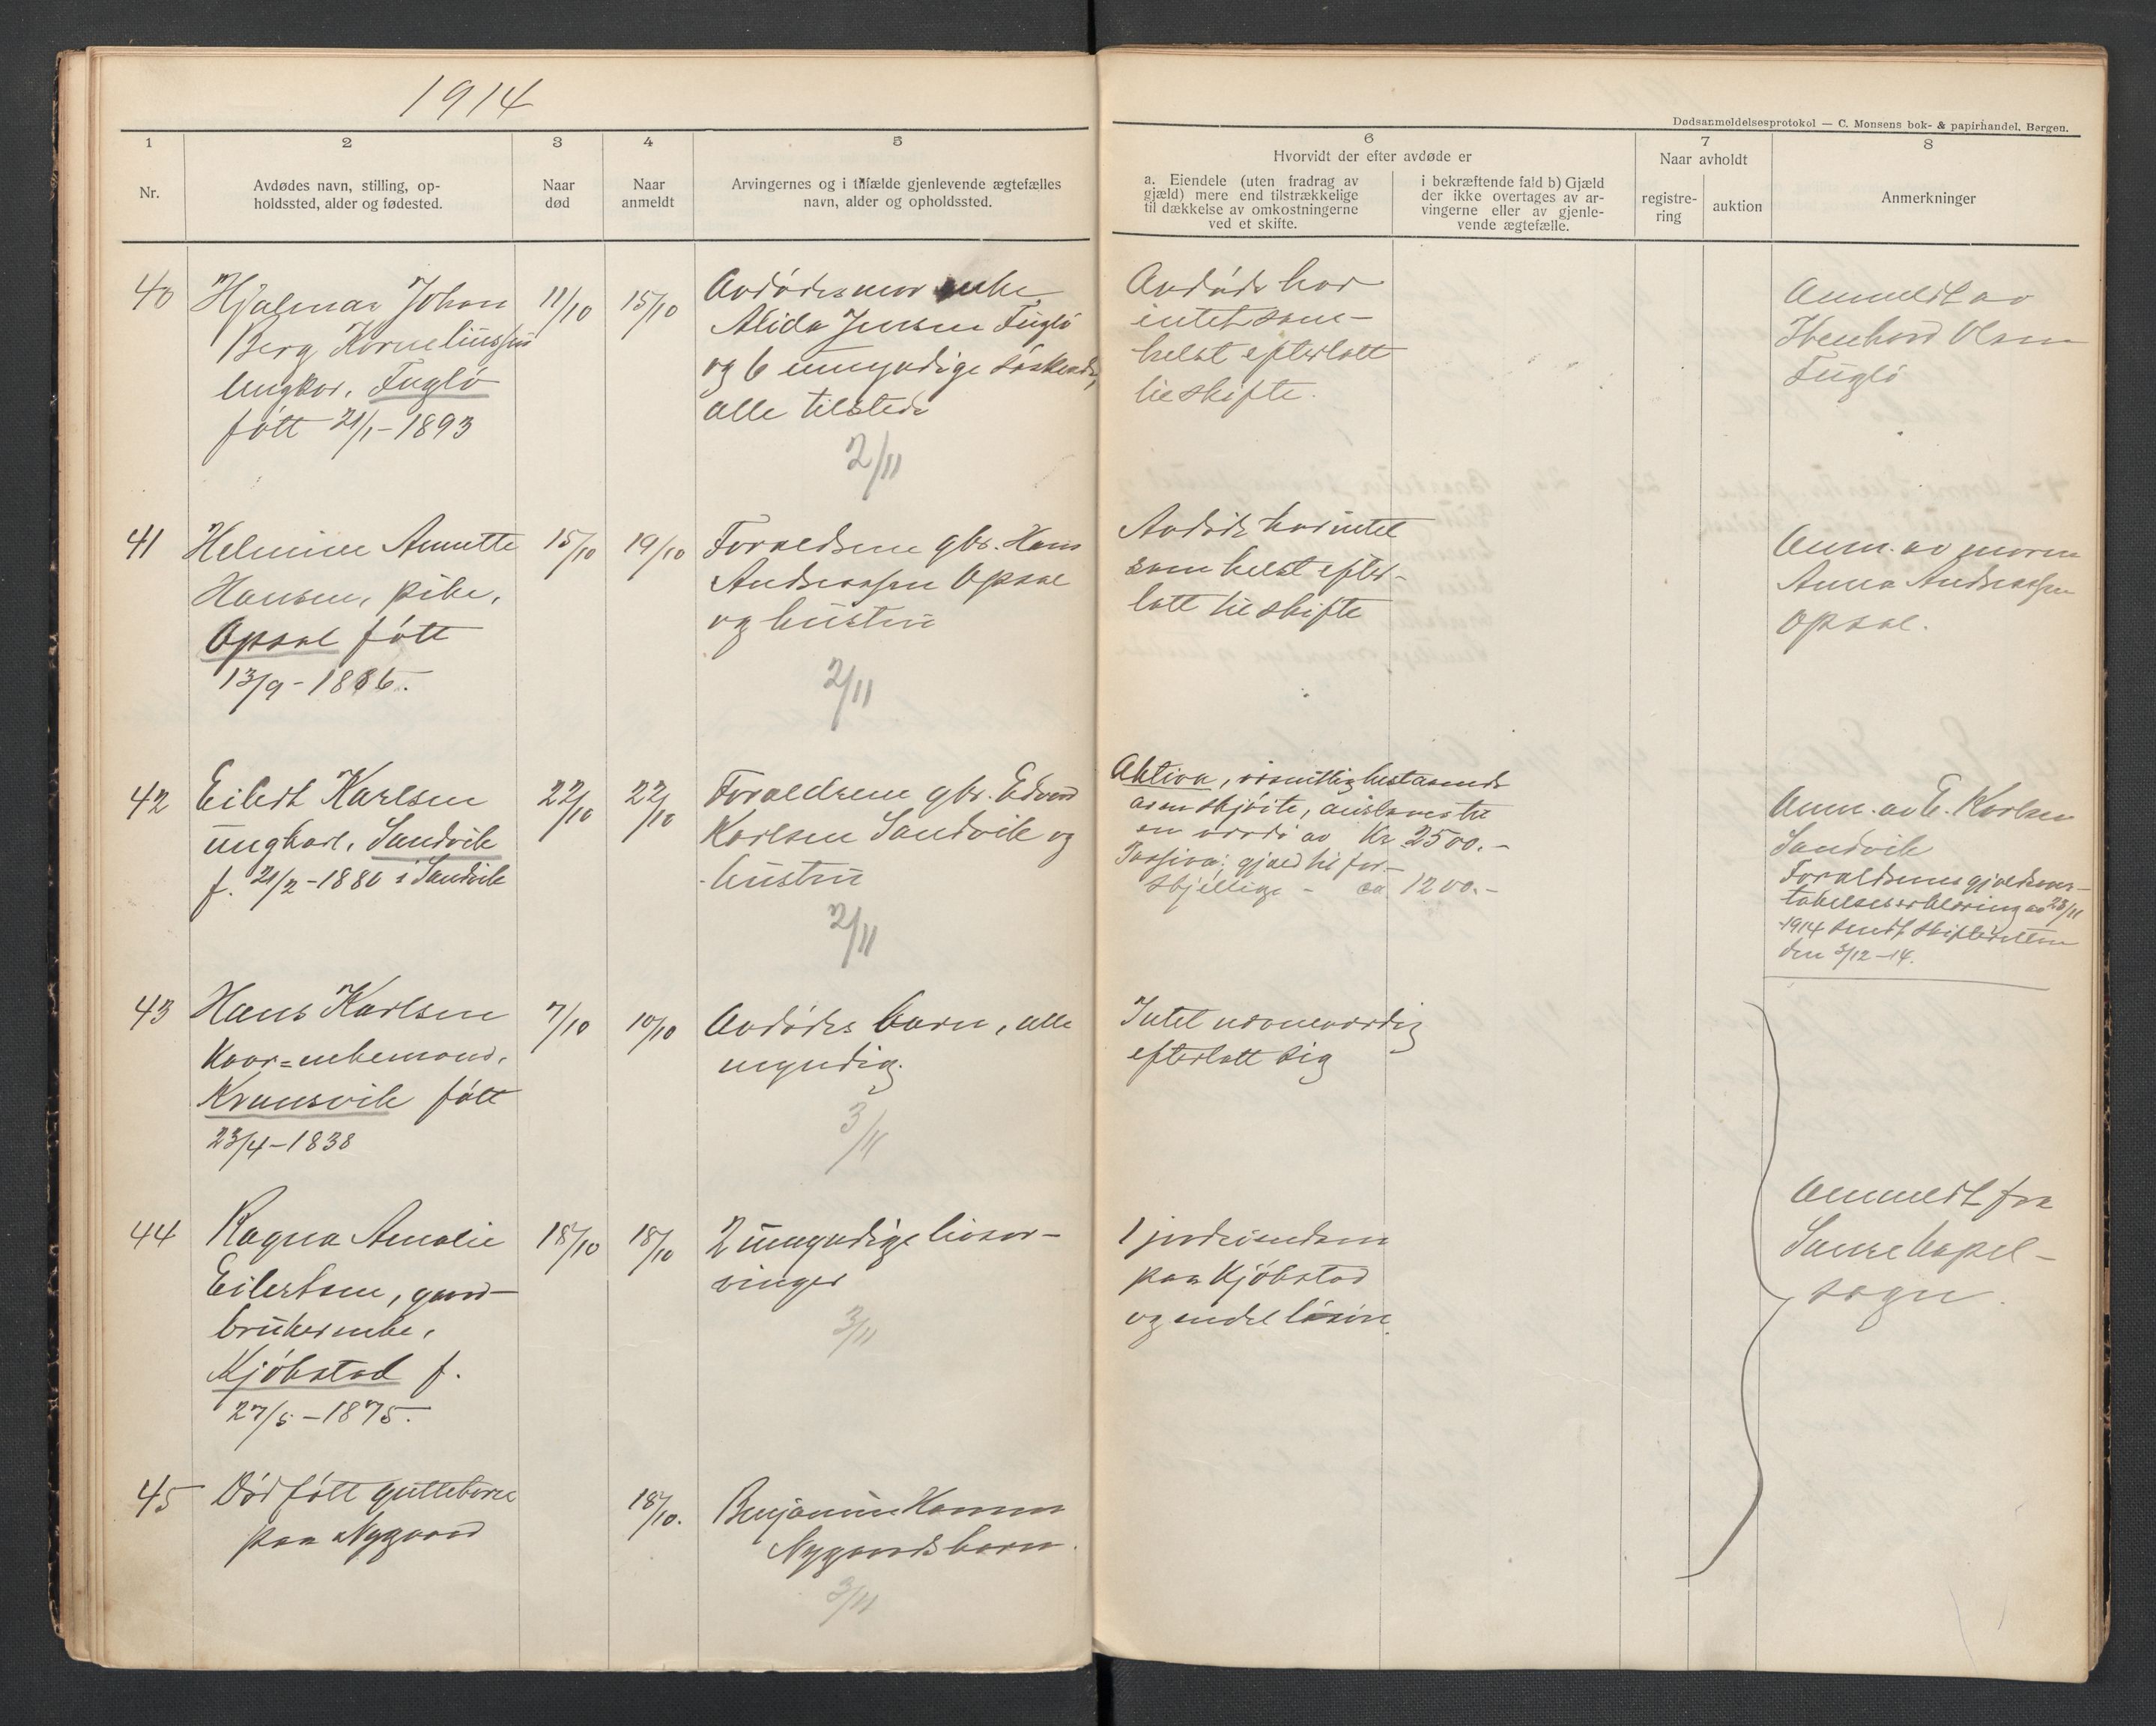 1914
Dødsanmeldelsesprotokol — C. Monsens bok- & papirhandel. Bergen.
1
2
3
4
5
6
7
8
Nr.
Avdødes navn, stilling, op-
holdssted, alder og fødested.
Naar
død
Naar
anmeldt
Arvingernes og i tilfælde gjenlevende ægtefælles
navn, alder og opholdssted.
Hvorvidt der efter avdøde er
a. Eiendele (uten fradrag av
gjæld) mere end tilstrækkelige
til dækkelse av omkostningerne
ved et skifte.
i bekræftende fald b) Gjæld
der ikke overtages av ar-
vingerne eller av gjenle-
vende ægtefælle.
Naar avholdt
registre-
ring
auktion
Anmerkninger
40
Hjalmar Johan
Berg Korneliussen
ungkar, Fuglö
fött 21/1-1893
11/10
15/10
Avdödes mor enke
Alida Jensen Fuglö
og 6 umyndige söskende,
alle tilstede
2/11
Avdöde har
intet som-
helst efterlatt
til skifte.
Anmeldt av
Olsen
Fuglö
41
Helmine Annette
Hansen, pike,
Opsal fött
13/9-1886.
15/10
19/10
Forældrene gbr. Hans
Andreassen Opsal
og hustru
2/11
Avdöde har intet
som helst efter-
latt til skifte
Anm. av moren
Anna Andreassen
Opsal.
42
Eilert Karlsen
ungkarl, Sandvik
f. 21/2-1880 i Sandvik
22/10
22/10
Forældrene gbr. Edvard
Karlsen Sandvik og
hustru
2/11
Aktiva, væsentlig bestaaende
av en skjöite, anslaaes til
en værdi av Kr 2500.-
Passiva; gjæld til for-
skjellige - ca. 1200.-
Anm. av E. Karlsen
Sandvik
Forældrenes gjældsover-
takelseserklæring av 23/11
1914 sendt skifteretten
den 3/12-14.
43
Hans Karlsen
Kaar=enkemand,
Kransvik fött
23/4-1838
7/10
10/10
Avdödes barn, alle
myndig.
3/11
Intet nævneværdig
efterlatt sig
44
Ragna Amalie
Eilertsen, gaard-
brukerenke,
Kjöbstad f.
27/5-1875.
18/10
18/10
2 umyndige livsar-
vinger
3/11
1 jordeiendom
paa Kjöbstad
og endel lösöre
Anmeldt fra
kapel-
sogn.
45
Död fött guttebarn
paa Nygaard
18/10.
Benjamin Hansen
Nygaards barn.
3/11